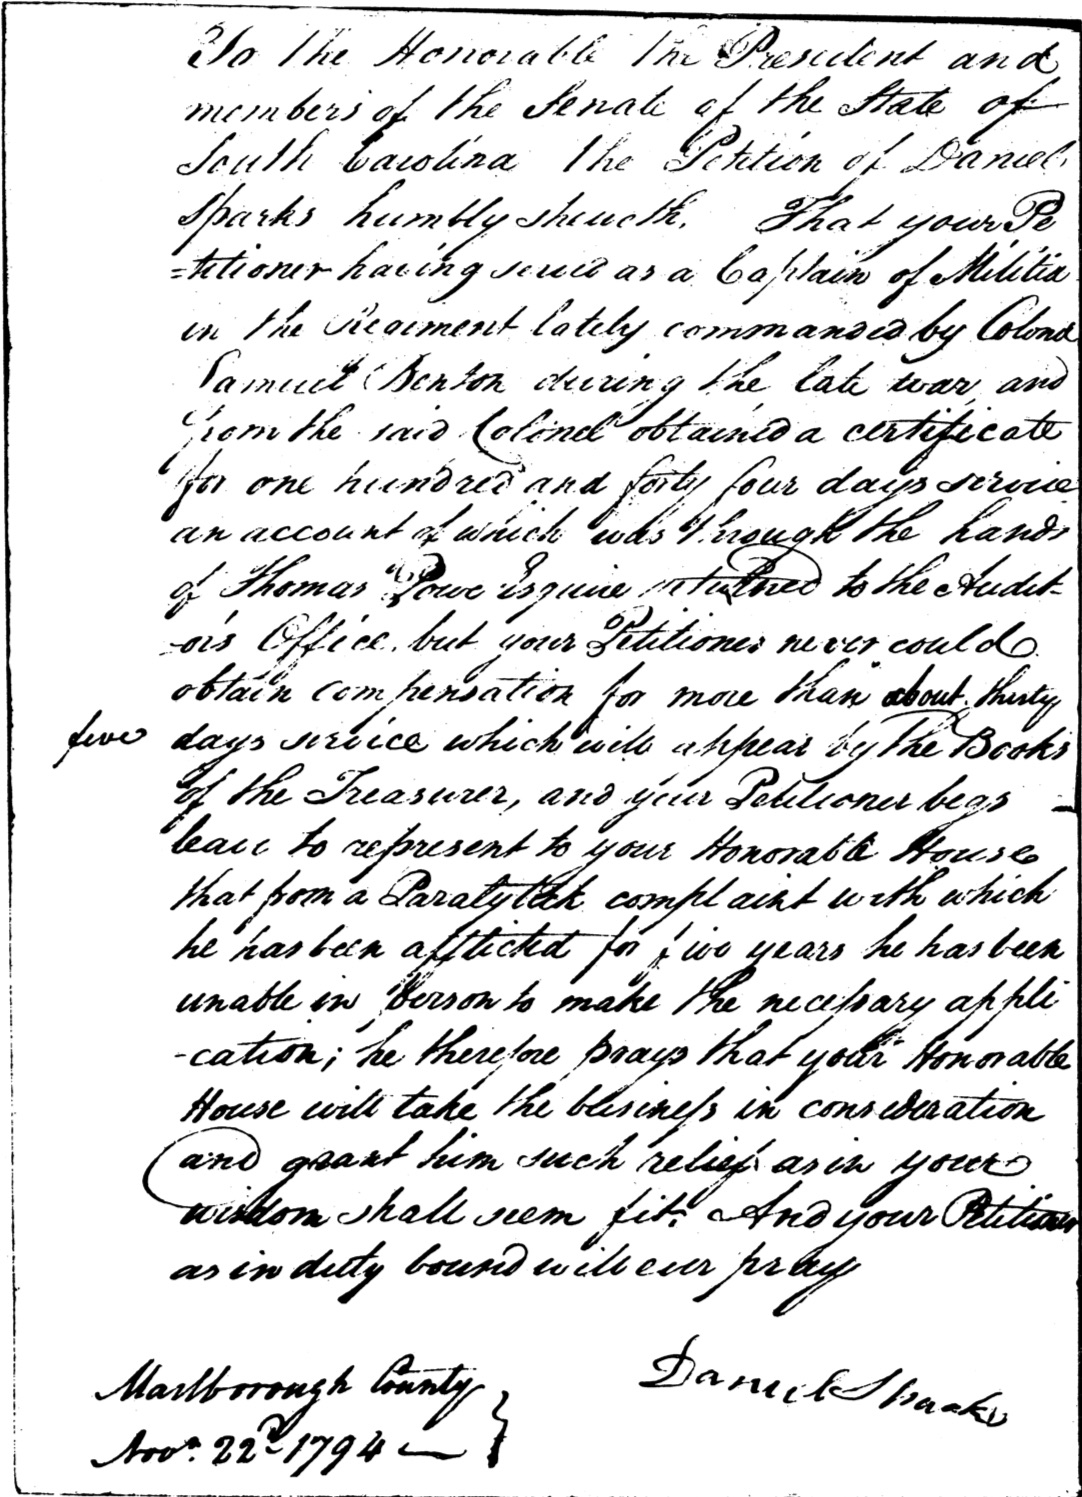 To the Honorable the President and
members of the Senate of the State of
South Carolina The Petition of Daniel
Sparks humbly sheweth. That your Pe
=titioner having served as a Captain of Militia
in the Regiment lately commanded by Colonel
Samuel Benton during the late war, and
from the said Colonel obtained a certificate
for one hundred and forty four days service
an account of which was through the hands
of Thomas Powe Esquire returned to the Audit-
-ors Office, but your Petitioner never could
obtain compensation for more than about thirty
five days service which will appear by the Books
of the Treasurer, and your Petitioner begs
leave to represent to your Honorable House
that from a Paralytick complaint with which
he has been afflicted for five years he has been
unable in person to make the necessary appli
-cation; he therefore prays that your Honorable
House will take the business in consideration
and grant him such relief as in your
wisdom shall seem fit. And your Petitioner
as in duty bound will ever pray
Marlborough County
Novr. 22d 1794
Daniel Sparks